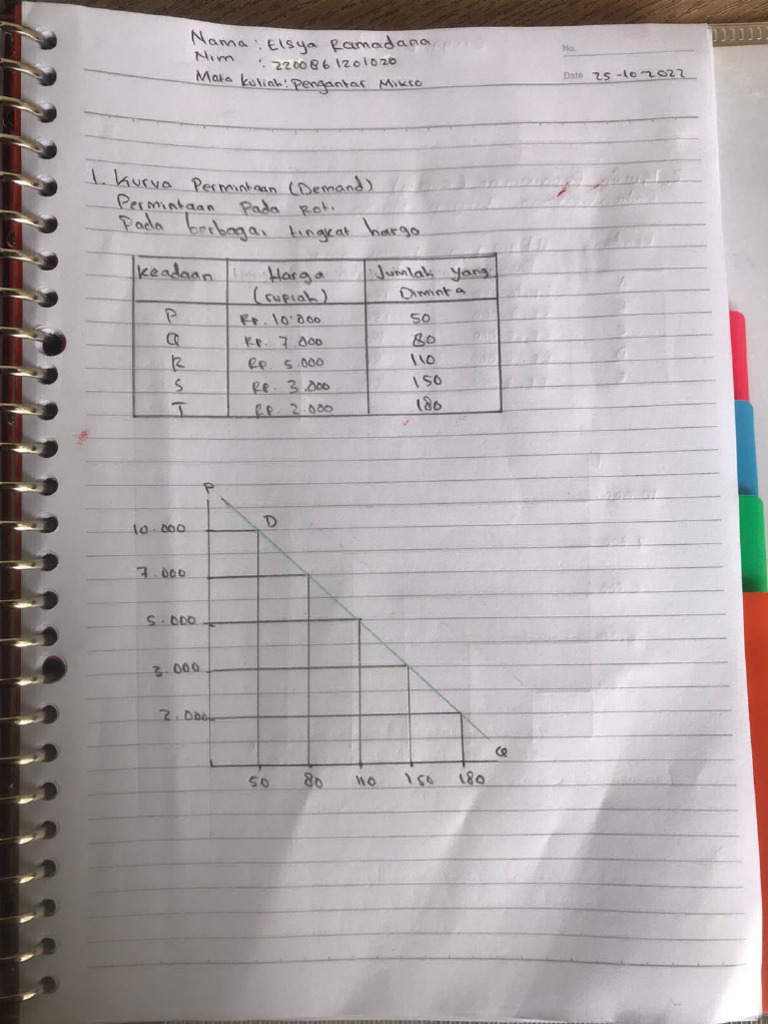 Nama : Elsya Ramadana
No.
Nim : 2200861201020
Mata Kuliah : Pengantar Mikro
Date 25-10-2022
1. Kurva Permintaan (Demand)
Permintaan Pada Roti
Pada berbagai tingkat harga
Keadaan Harga (rupiah) Jumlah yang Diminta
P Rp. 10.000 50
Q Rp. 7.000 80
R Rp 5.000 110
S Rp. 3.000 150
T Rp. 2.000 180
P
D
10.000
7.000
5.000
3.000
2.000
Q
50 80 110 150 180